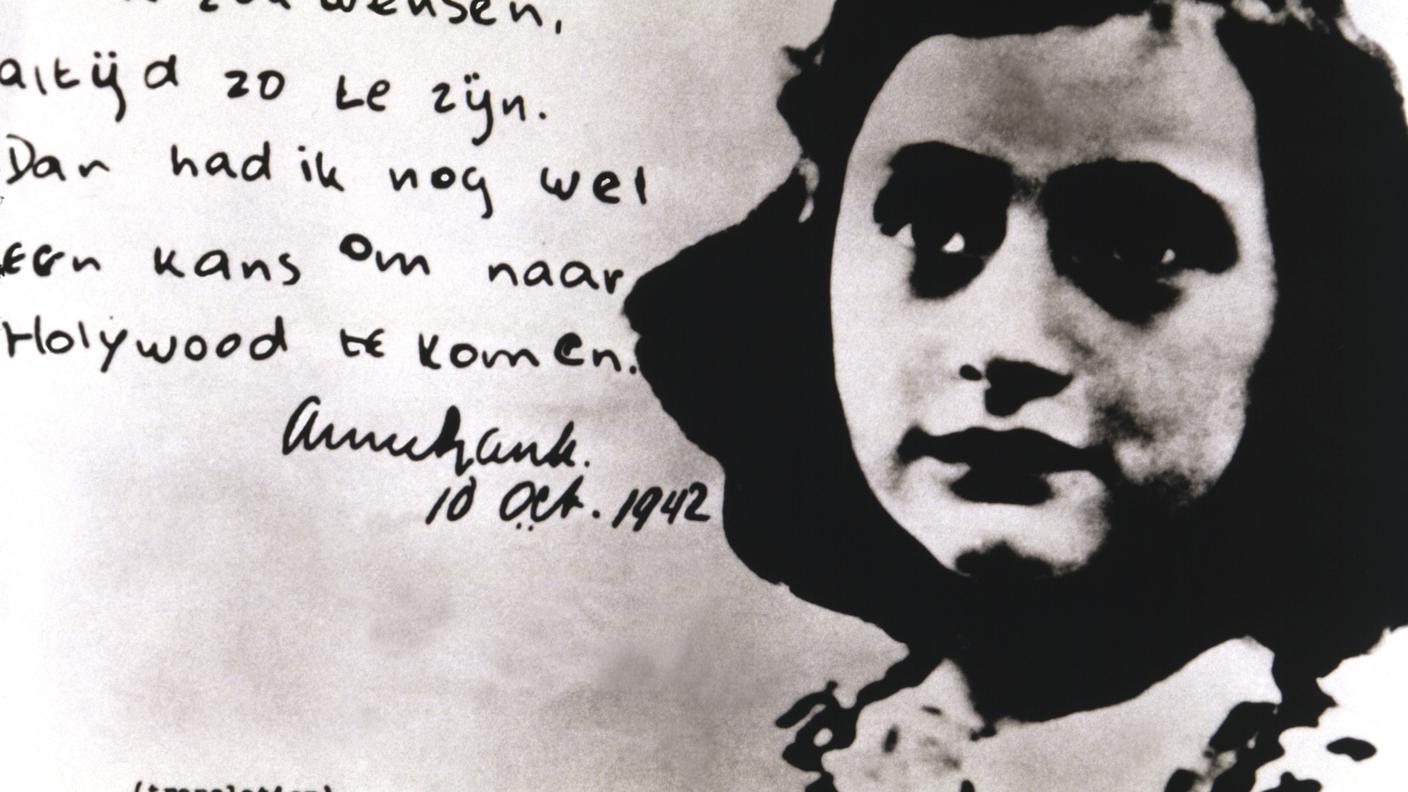 zou wensen,
altijd zo te zijn.
Dan had ik nog wel
een kans om naar
Holywood te komen.
Annefrank.
10 Oct. 1942
(translation)